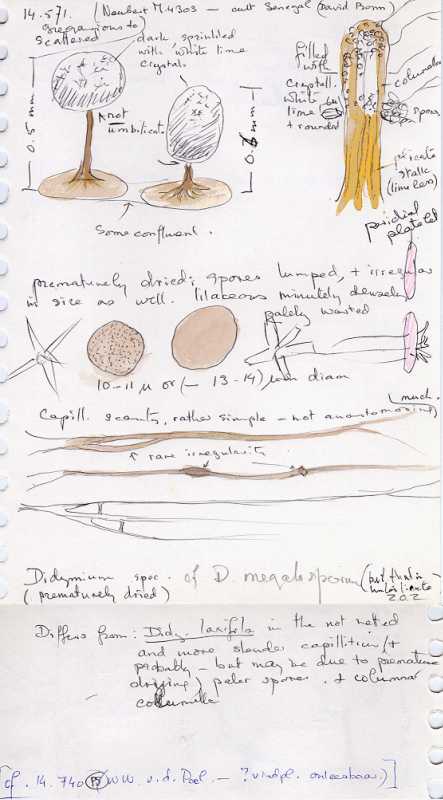 14.571. (Neubert M.4303 — cult Senegal (David Bonn)
gregarious to
scattered
dark, sprinkled
with white lime
crystals
not
umbilicate
0.5 mm
filled
with
crystall.
white
lime
+ rounded
columella
spores
plicate
stalk
(limeless)
Some confluent.
peridial
platelet
prematurely dried: spores lumped, + irregular
in size as well. lilaceous minutely densely
palely warted
10–11 µ or (– 13–14) µm diam
Capill. scanty, rather simple – not anastomosing
much.
↑ rare irregularity
Didymium spec. cf D. megalosporum
(prematurely dried)
Differs from: Didy. laxifila in the not netted
and more slender capillitium/+
probably – but may be due to premature
drying) paler spores. + columnar
columella
[cf. 14.740 W.W. v.d. Poel. — ? vindpl. onleesbaar.)]